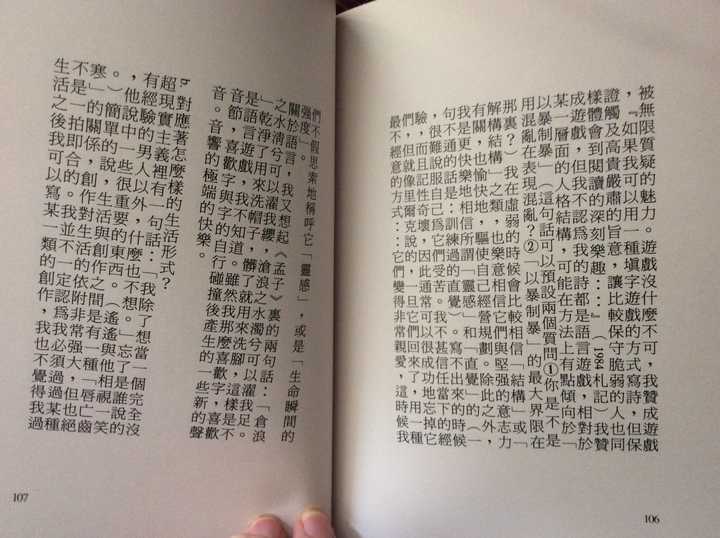 被無限質疑的魅力。遊戲沒什麼不可,我贊成遊戲
,如果我可以用一種填字遊戲的方式寫詩,但保
證觸及高貴嚴肅的旨意,讓比較保守脆弱的人也同
樣體會到閱讀的深刻樂趣⋯⋯」(1984札記)我贊
成遊戲,但我不認為我的詩都是語言遊戲,相對於
某一層面的人格結構,可能在方法上有點傾向於「
以暴制暴」(這句話可以預設兩個質問①你是不是
用混亂在表現混亂?②「以暴制暴」的最大界限在
那裏?)我在虛弱的時候會比較相信「結構」或「
解構結構」之類,也樂意相信它們與堅強的意志力
有關,也愉快地驅使自己經營規劃。除此之外,
我是更快樂地相信所謂「靈感」和「直覺」(一
句不通的話是:訓練過的直覺)。寫不出來的時候
106
們不假思索地稱呼它「靈感」,或是「生命瞬間的
強度」。
關於語言,我又想起《孟子》裏的兩句話:「倉浪
之水淸兮可以濯我纓,滄浪之水濁兮可以濯我足。
」乾淨了用來洗帽子,髒了就用來洗腳,這樣是不
是語言遊戲,我不知道。雖然我那麼喜歡字,喜歡
音節,喜歡字與字的自行碰撞後產生的一些新的聲
音。音響的極端的快樂。
b.對應著怎麼樣的生活形式?
超現實主義裡有一句話:「我除了想當一個完全沒
有經驗的男人以外,什麼也不想。」忘了是誰說的
,他說中一些很重要的東西。(遙遙與他相視一笑
。)簡單的說,生活與創作之間是有一種「唇亡齒
寒」的關係,創作對生活的依附非常強大,但也絕
不是一拍即合的。我並不一定認為我必須過某種
生活之後我可以寫某一類的創作,我也不覺得我過
107